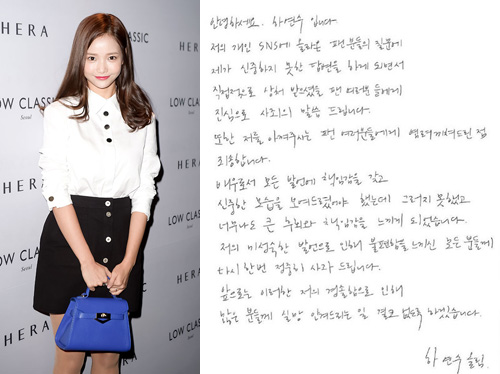 HERA
HERA
LOW CLASSIC
Seoul
LOW CLASSIC
Seoul
HERA
HERA
LOW CLASSIC
LOW CLA
HERA
안녕하세요. 하연수 입니다.
저의 개인 SNS에 올라온 팬분들의 질문에
제가 신중하지 못한 답변을 하게 되면서
직접적으로 상처 받으셨을 팬 여러분들에게
진심으로 사죄의 말씀 드립니다.
또한 저를 아껴주시는 팬 여러분들에게 심려끼쳐드린 점
죄송합니다.
배우로서 모든 발언에 책임감을 갖고
신중한 모습을 보여드렸어야 했는데 그러지 못했고
너무나도 큰 후회와 책임감을 느끼게 되었습니다.
저의 미성숙한 발언으로 인해 불편함을 느끼신 모든 분들께
다시 한번 정중히 사과 드립니다.
앞으로는 이러한 저의 경솔함으로 인해
많은 분들께 실망 안겨드리는 일 결코 없도록 하겠습니다.
하연수 올림.